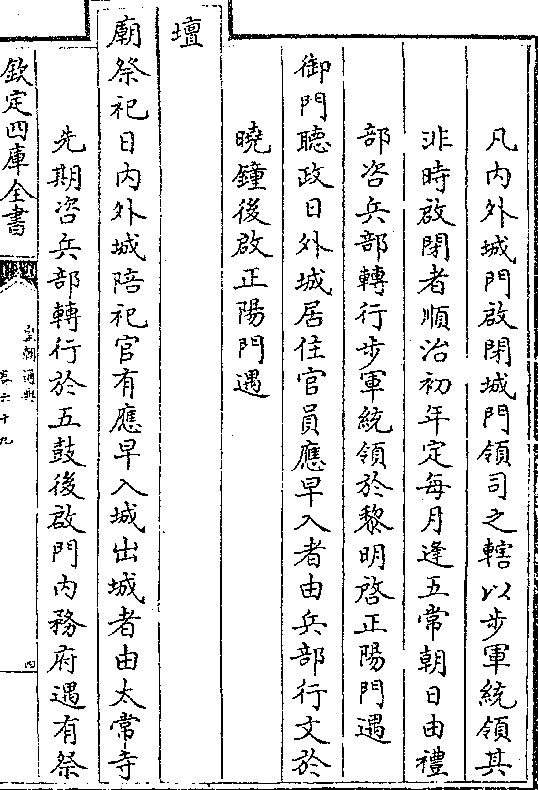 凡內外城門啟閉城門領司之轄以步軍統領其
非時啟閉者順治初年定每月逢五常朝日由禮
部咨兵部轉行步軍統領於黎明啓正陽門遇
御門聽政日外城居住官員應早入者由兵部行文於
曉鐘後啟正陽門遇
壇
廟祭祀日內外城陪祀官有應早入城出城者由太常寺
先期咨兵部轉行於五鼓後啟門內務府遇有祭
欽定四庫全書
皇朝通典
卷六十九
四